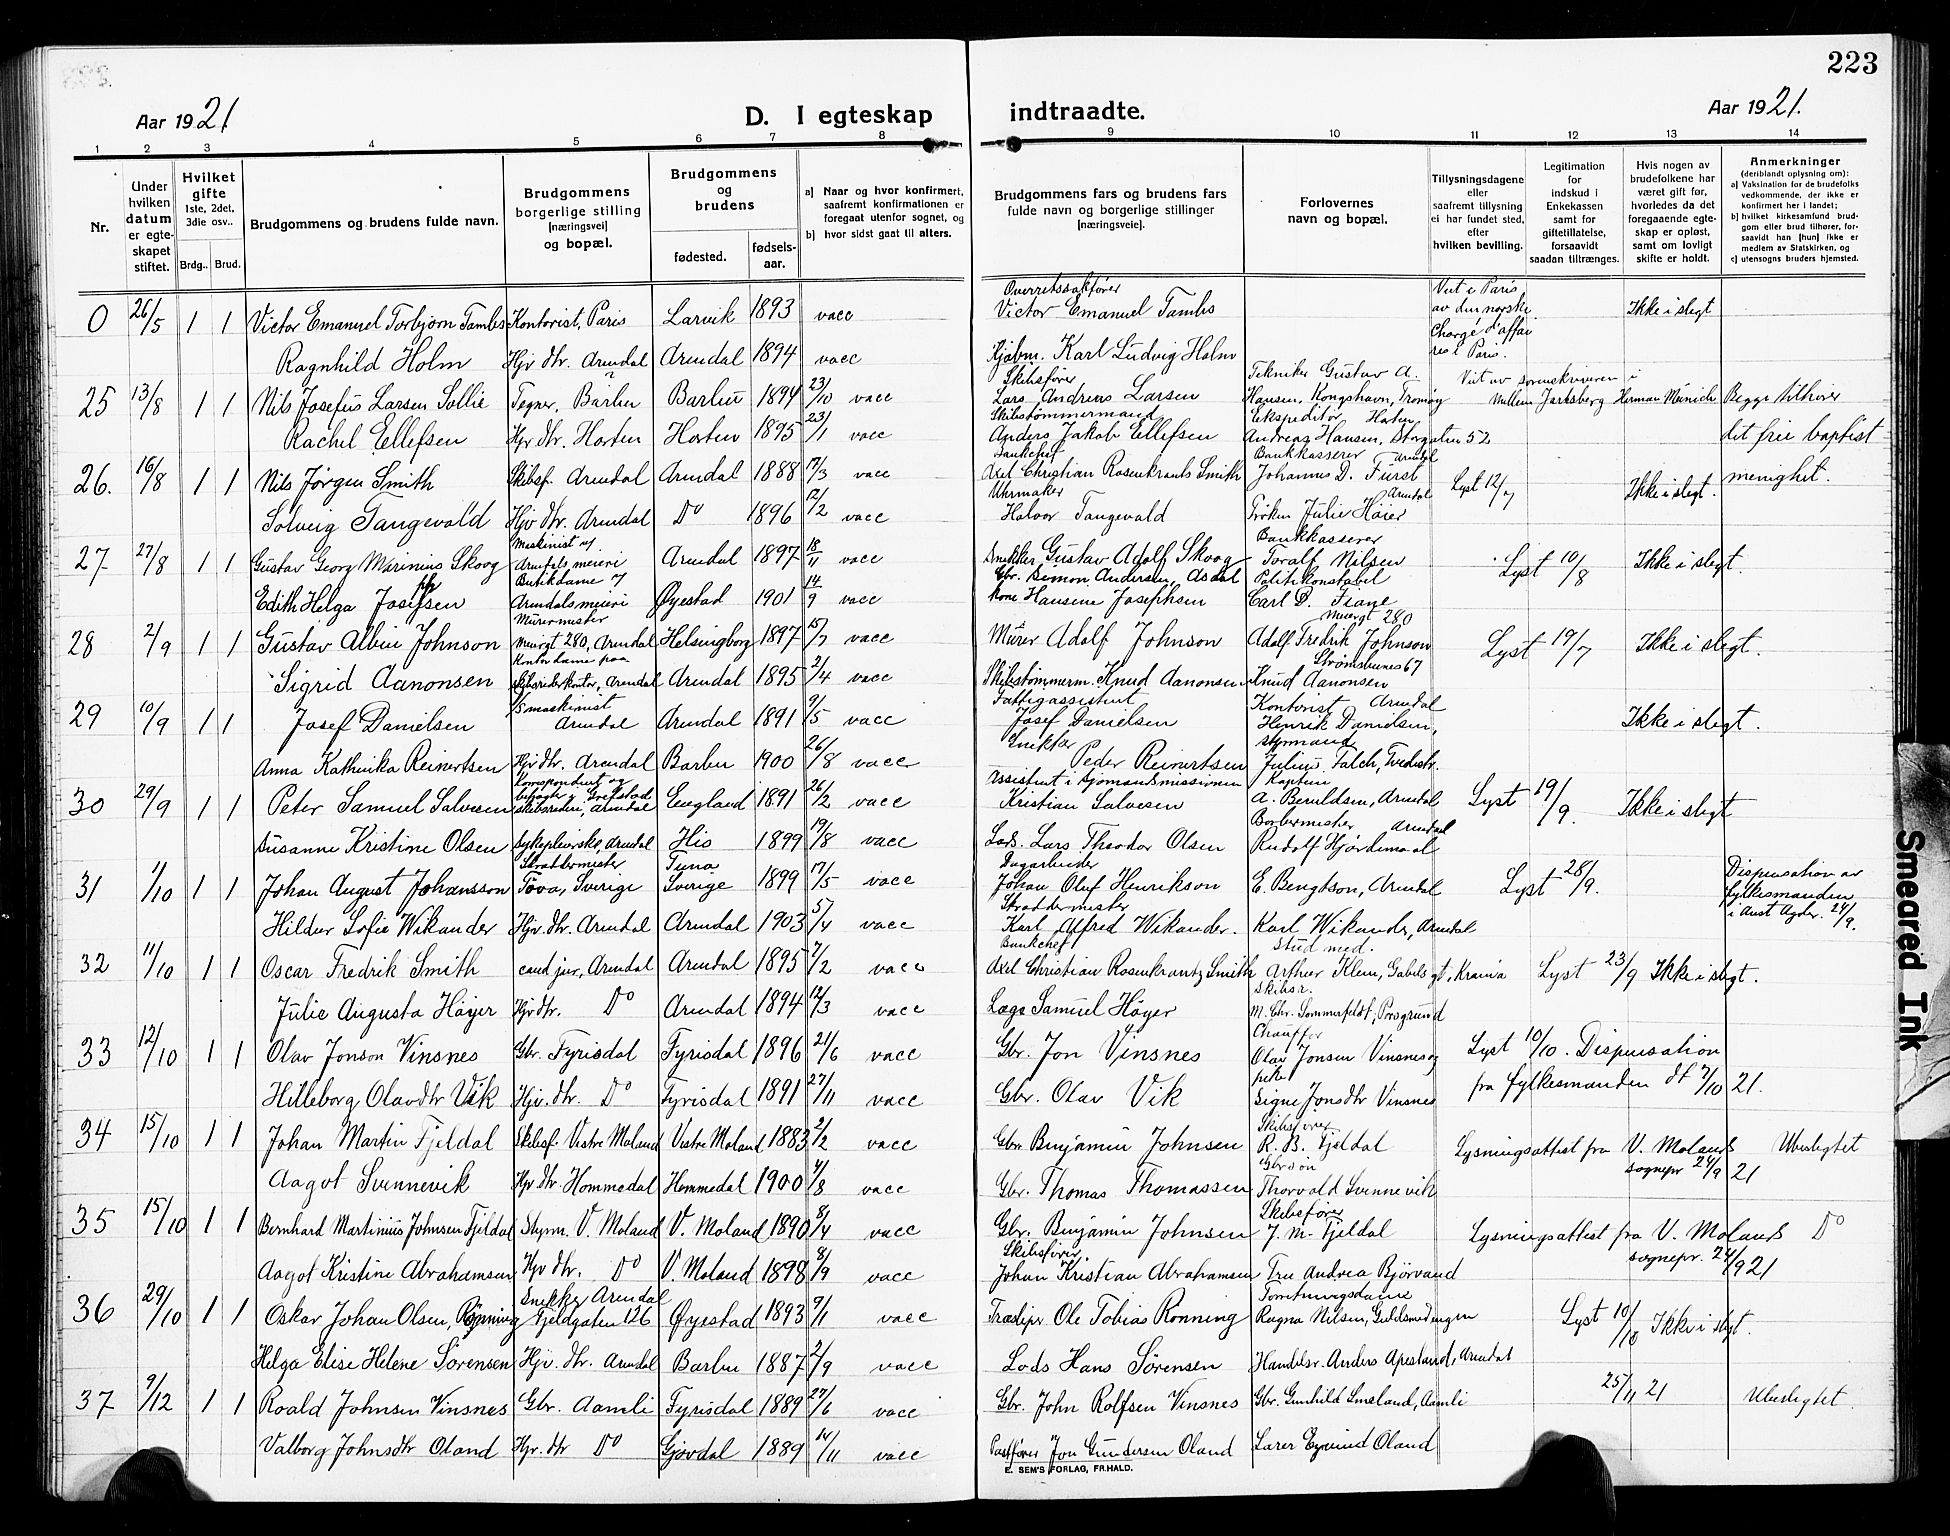 223
Aar 1921.
D. I egteskap indtraadte.
Aar 1921.
1 2 3 4 5 6 7 8 9 10 11 12 13 14
Nr.
Under hvilken datum er egte-skapet stiftet.
Hvilket gifte 1ste, 2det, 3die osv..
Brdg.. Brud.
Brudgommens og brudens fulde navn.
Brudgommens borgerlige stilling (næringsvei) og bopæl.
Brudgommens og brudens
fødested. fødsels-aar.
a) Naar og hvor konfirmert, saafremt konfirmationen er foregaat utenfor sognet, og
b) hvor sidst gaat til alters.
Brudgommens fars og brudens fars fulde navn og borgerlige stillinger (næringsveie).
Forlovernes navn og bopæl.
Tillysningsdagene eller saafremt tillysning ei har fundet sted, efter hvilken bevilling.
Legitimation for indskud i Enkekassen samt for giftetillatelse, forsaavidt saadan tiltrænges.
Hvis nogen av brudefolkene har været gift før, hvorledes da det foregaaende egte-skap er opløst, samt om lovligt skifte er holdt.
Anmerkninger (deriblandt oplysning om):
a) Vaksination for de brudefolks vedkommende, der ikke er konfirmert her i landet;
b) hvilket kirkesamfund brud-gom eller brud tilhører, for-saavidt han (hun) ikke er medlem av Statskirken, og
c) utensogns bruders hjemsted.
0 26/5 1 1 Victor Emanuel Torbjørn Tambs Kontorist, Paris Larvik 1893 vacc Overretssakfører Victor Emanuel Tambs Viet i Paris av den norske Chargé d'affaires i Paris. Ikke i slegt
Ragnhild Holm Hjv dtr. Arendal Arendal 1894 vacc Kjøbm. Karl Ludvig Holm
25 13/8 1 1 Nils Josefus Larsen Sollie Tegner, Barbu Barbu 1894 23/10 vacc Skibsfører Lars Andreas Larsen Tekniker Gustav A. Hansen, Kongshavn, Tromøy Viet av sorenskriveren i Mellem Jarlsberg Herman Münich Begge tilhører
Rachel Ellefsen Hjv dtr. Horten Horten 1895 23/1 vacc Skibstømmermand Anders Jakob Ellefsen Ekspeditør Horten Andreas Hansen, Storgaten 52 det frie baptist
26. 16/8 1 1 Nils Jørgen Smith Skibsf. Arendal Arendal 1888 17/3 vacc Bankchef Axel Christian Rosenkrants Smith Bankkasserer Arendal Johannes D. Fürst Lyst 12/7 Ikke i slegt. menighet.
Solveig Tangevald Hjv dtr. Arendal Do 1896 12/2 vacc Uhrmaker Halvor Tangevald Arendal Frøken Julie Høier
27 27/8 1 1 Gustav Georg Marinius Skoog Maskinist v/ Arendals meieri Arendal 1897 18/11 vacc Snekker Gustav Adolf Skoog Bankkasserer Toralf Nilsen Lyst 10/8 Ikke i slegt.
Edith Helga Josefsen ph Butikdame v/ Arendals meieri Øyestad 1901 14/9 vacc Gbr. Simon Andersen, Asdal kone Hansene Josephsen Politikonstabel Carl D. Fiane
28 2/9 1 1 Gustav Albin Johnson Murermester Meiergt 280, Arendal Helsingborg 1897 15/7 vacc Murer Adolf Johnson Meiergt 280 Adolf Fredrik Johnson Lyst 19/7 Ikke i slegt.
Sigrid Aanonsen Kontordame paa skibsrederkontor, Arendal Arendal 1895 2/4 vacc Skibstømmerm. Knud Aanonsen Strømsbunes 67 Knud Aanonsen
29 10/9 1 1 Josef Danielsen maskinist Arendal Arendal 1891 9/5 vacc Fattigassistent Josef Danielsen Kontorist Arendal Henrik Danielsen, Ikke i slegt.
Anna Kathinka Reinertsen Hjv dtr. Arendal Barbu 1900 26/8 vacc Snekker Peder Reinertsen styrmand Julius Falch, Tvedestr.
30 29/9 1 1 Peter Samuel Salvesen Korrespondent og skibsreder, Arendal England 1891 26/2 vacc Assistent i sjømandsmissionen Kristian Salvesen Kaptein A. Beruldsen, Arendal Lyst 19/9. Ikke i slegt
Susanne Kristine Olsen Sykepleierske, Arendal His 1899 19/8 vacc Lods. Lars Theodor Olsen Borbermester Arendal Rudolf Hjørdemaal
31 1/10 1 1 Johan August Johansson Skræddermester Tova, Sverige Tuna Sverige 1899 17/5 vacc Dagarbeider Johan Oluf Henrikson E. Bengtson, Arendal Lyst 28/9. Dispensation av fylkesmanden i Aust Agder. 24/9.
Hildur Sofie Wikander Hjv. dtr. Arendal Arendal 1903 5/4 vacc Skræddermester Karl Alfred Wikander. Karl Wikander, Arendal
32 11/10 1 1 Oscar Fredrik Smith cand jur, Arendal Arendal 1895 7/2 vacc Bankchef Axel Christian Rosenkrantz Smith stud med. Arthur Klem, Gabelsgt, Krania Lyst 23/9 Ikke i slegt.
Julie Augusta Høyer Hjv dtr. Do Arendal 1894 12/3 vacc Læge Samuel Høyer skibsr. M. Chr. Sommerfeldt, Porsgrund
33 12/10 1 1 Olav Jonson Vinsnes Gbr. Fyrisdal Fyrisdal 1896 21/6 vacc Gbr. Jon Vinsnes Chauffør Olav Jonsen Vinsnes og Lyst 10/10. Dispensation
Hilleborg Olavdtr Vik Hjv. dtr. Do Fyrisdal 1891 27/11 vacc Gbr. Olav Vik pike Signe Jonsdtr Vinsnes fra fylkesmanden dt 7/10 21.
34 15/10 1 1 Johan Martin Fjeldal Skibsf. Vestre Moland Vestre Moland 1883 2/2 vacc Gbr. Benjamin Johnsen Skibsfører R. B. Fjeldal Lysningsattest fra V. Molands sognepr 24/9 21 Ubeslegtet
Aagot Svennevik Hjv dtr. Hommedal Hommedal 1900 4/8 vacc Gbr. Thomas Thomassen Gbrsøn Thorvald Svennevik
35 15/10 1 1 Bernhard Martinius Johnsen Fjeldal Styrm. V. Moland V. Moland 1890 8/4 vacc Gbr. Benjamin Johnsen Skibsfører J. M. Fjeldal Lysningsattest fra V. Molands Do
Aagot Kristine Abrahamsen Hjv dtr. Do V. Moland 1898 8/9 vacc Skibsfører. Johan Kristian Abrahamsen Fru Andrea Bjørvand sognepr. 24/9 21
36 29/10 1 1 Oskar Johan Olsen, Rønning Snekker Arendal Fjeldgaten 126 Øyestad 1893 9/1 vacc Træsliper Ole Tobias Rønning Forretningsdame Ragna Nilsen, Guldsmedengen Lyst 10/10 Ikke i slegt.
Helga Elise Helene Sørensen Hjv. dtr. Arendal Barbu 1887 2/9 vacc Lods Hans Sørensen Handelsr. Anders Apesland, Arendal
37 9/12 1 1 Roald Johnsen Vinsnes Gbr. Aamli Fyrisdal 1889 27/6 vacc Gbr. John Rolfsen Vinsnes Gbr. Gunhild Smeland, Aamli 25/11 21 Ubeslegtet.
Valborg Johnsdtr Oland Hjv. dtr Do Gjøvdal 1889 14/11 vacc Postfører Jon Gundersen Oland Lærer Eyvind Oland
E. SEM'S FORLAG, FR.HALD.
Smeared Ink